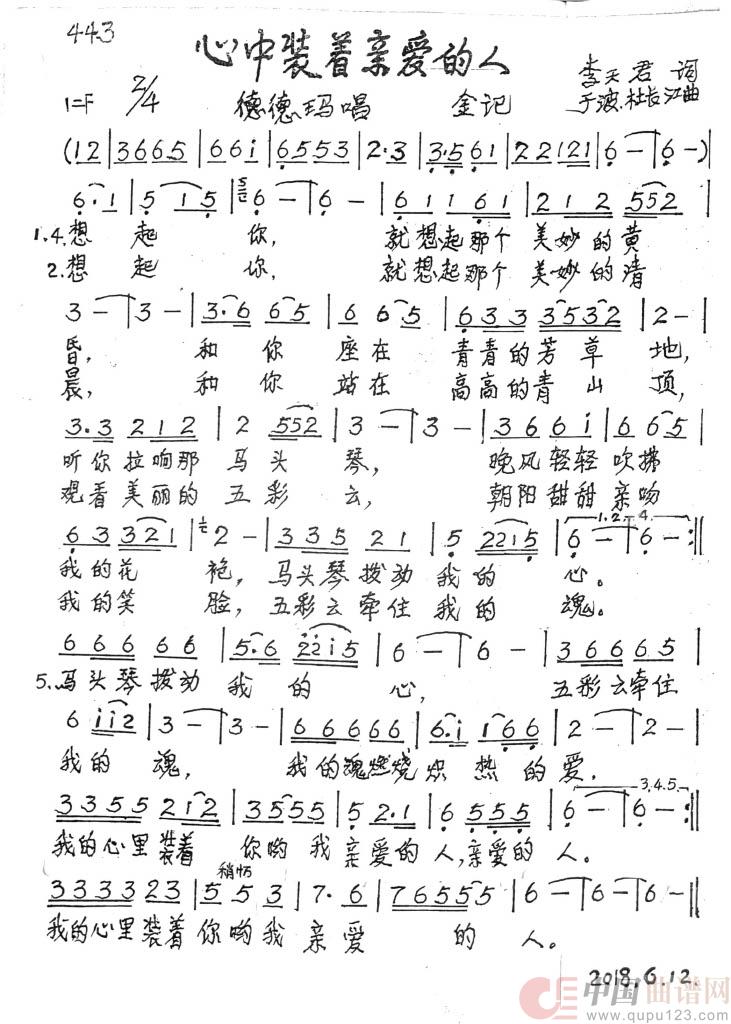 443
心中装着亲爱的人
李天君 词
1=F 2/4 德德玛唱 金记 于波.杜长江曲
(12|3665|66i|6553|2·3|3·561|22121|6-|6-)
6·1|515|6-|6-|61161|212552
1.4.想起你, 就想起那个美妙的黄
2.想起你, 就想起那个美妙的清
3-|3-|3·665|665|6333532|2-|
昏, 和你座在青青的芳草地,
晨, 和你站在高高的青山顶,
3·3212|2552|3-|3-|366i|665|
听你拉响那马头琴, 晚风轻轻吹拂
观看美丽的五彩云, 朝阳甜甜亲吻
1.2.-4.
633321|2-|33521|52215|6-|6-:||
我的花袍,马头琴拨动我的心。
我的笑脸,五彩云牵住我的魂。
66666|5·622i5|6-|6-|36665|
5.马头琴拨动我的心, 五彩云牵住
6ii2|3-|3-|66666|6·i166|2-|2-|
我的魂, 我的魂燃烧炽热的爱.
3.4.5.
3355212|3555|52·1|6555|6-|6-:||
我的心里装着你哟我亲爱的人,亲爱的人.
稍忄
333323|553|7·6|76555|6-|6-|6-||
我的心里装着你哟我亲爱的人。
2018.6.12.
中国曲谱网
www.qupu123.com